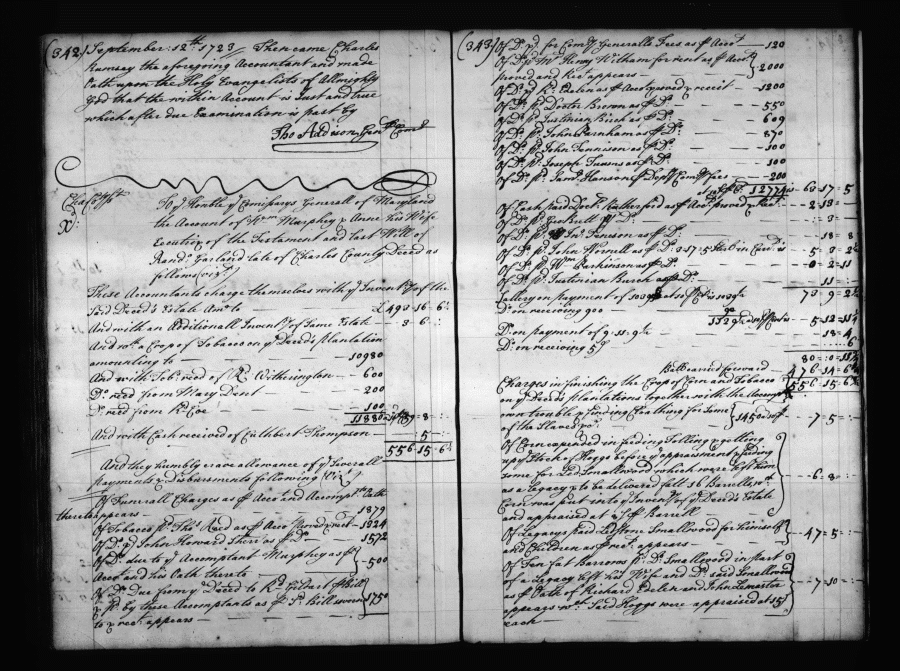 (342) September 12th 1723 Then came Charles
Rumsey the aforegoing Accountant and made
Oath upon the Holy Evangelists of Allmighty
God that the within Account is Just and true
which after due Examination is past by
Tho Addison
To ye Honble ye Comissary Generall of Maryland
the Account of Wm Murphey & Anne his Wife
Executrix of the Testament and Last Will of
Garland late of Charles County Decd as
follows (vizt)
These Accountants charge themselves with ye Inventy of the
said Deced's Estate Amo to £ 493 - 16 - 6
And with an Additionall Inventy of same Estate 3 - 6 -
And wth a Crop of Tobacco on ye Deced's plantation
amounting to 10980
And with Tobo recd of Witherington 600
Do recd from Mary Dent 200
Do recd from Coe 100
11880
And with Cash received of Cuthbert Thompson 5
556 - 15 - 6
And they humbly crave allowance of ye severall
payments & disbursments following vizt
Of Funerall Charges as pr Acco and Accomptts Oath
thereto appears 1879
Of Tobacco pd Thos Reed as pr Acco proved & rect 1924
Of Do pd John Howard as pr Do 1572
Of Do due to ye Accomptant Murphey as pr
Acco and his Oath thereto 500
Of Do Due from ye Deced to Gilbert pr Bill
& pd by these Accomptants as pr Bill
& rect appears 1750
(343) Of Do pd for Comry Generalls Fees as pr Acco 120
Of Do pd Mr Henry Witham for rent as pr Acco
proved and Rec appears 2000
Of Do pd Edelen as pr Acco proved & receit 1200
Of Do pd Doctor Brown as pr Do 550
Of Do pd Justinian Burch as pr Do 609
Of Do pd John Barnham as pr Do 870
Of Do pd John Tennison as pr Do 100
Of Do pd Joseph as pr Do 100
Of Do pd Saml Hanson pr Depty Comry fees 200
12774 60 - 17 - 5
Of Cash paid Doct. as pr Acco proved & Rect 2 - 13 -
Of Do pd Do 3
Of Do pd Jno Tenison as pr Do 18 - 8
Of Do pd John Wornell as pr Do 5 - 3 - 2
Of Do pd Wm Parkinson as pr Do 0 - 2 - 11
Of Do pd Justinian Burch as pr Do 11
Sallery on payment of 73 - 9 - 2
Do on receiving 900 90
1329 5 - 12 - 11
Do on payment of 9 - 11 - 9 18 - 4
Do on receiving 5 6
80 - 0 - 11
Ballance Carried 476 - 14 - 6
556 - 15 - 6
Charges in finishing the Crop of Corn and Tobacco
on ye Deced's plantations together with the Accompts
own trouble & finding Cloathing for some 1450
of the Slaves 7 - 5 -
Of Corn expended in feeding Selling & getting
up ye Stock of Hoggs before ye appraisment & feeding
some for Smallwood which were left him
as a Legacy & to be delivered 16 Barrells wch
Corn was put into ye Inventy of ye Deced's Estate
and appraised at pr Barrell 6 - 8 -
Of Legacys paid Smallwood for himself
and Children as pr rect appears 47 - 5 -
Of Ten Fat Barrows pd Do Smallwood in part
of a Legacy left his Wife and Do said Smallwood
as pr Oath of Richard Edelen and John
appears wch said Hoggs were appraised at 15
each 7 - 10 -